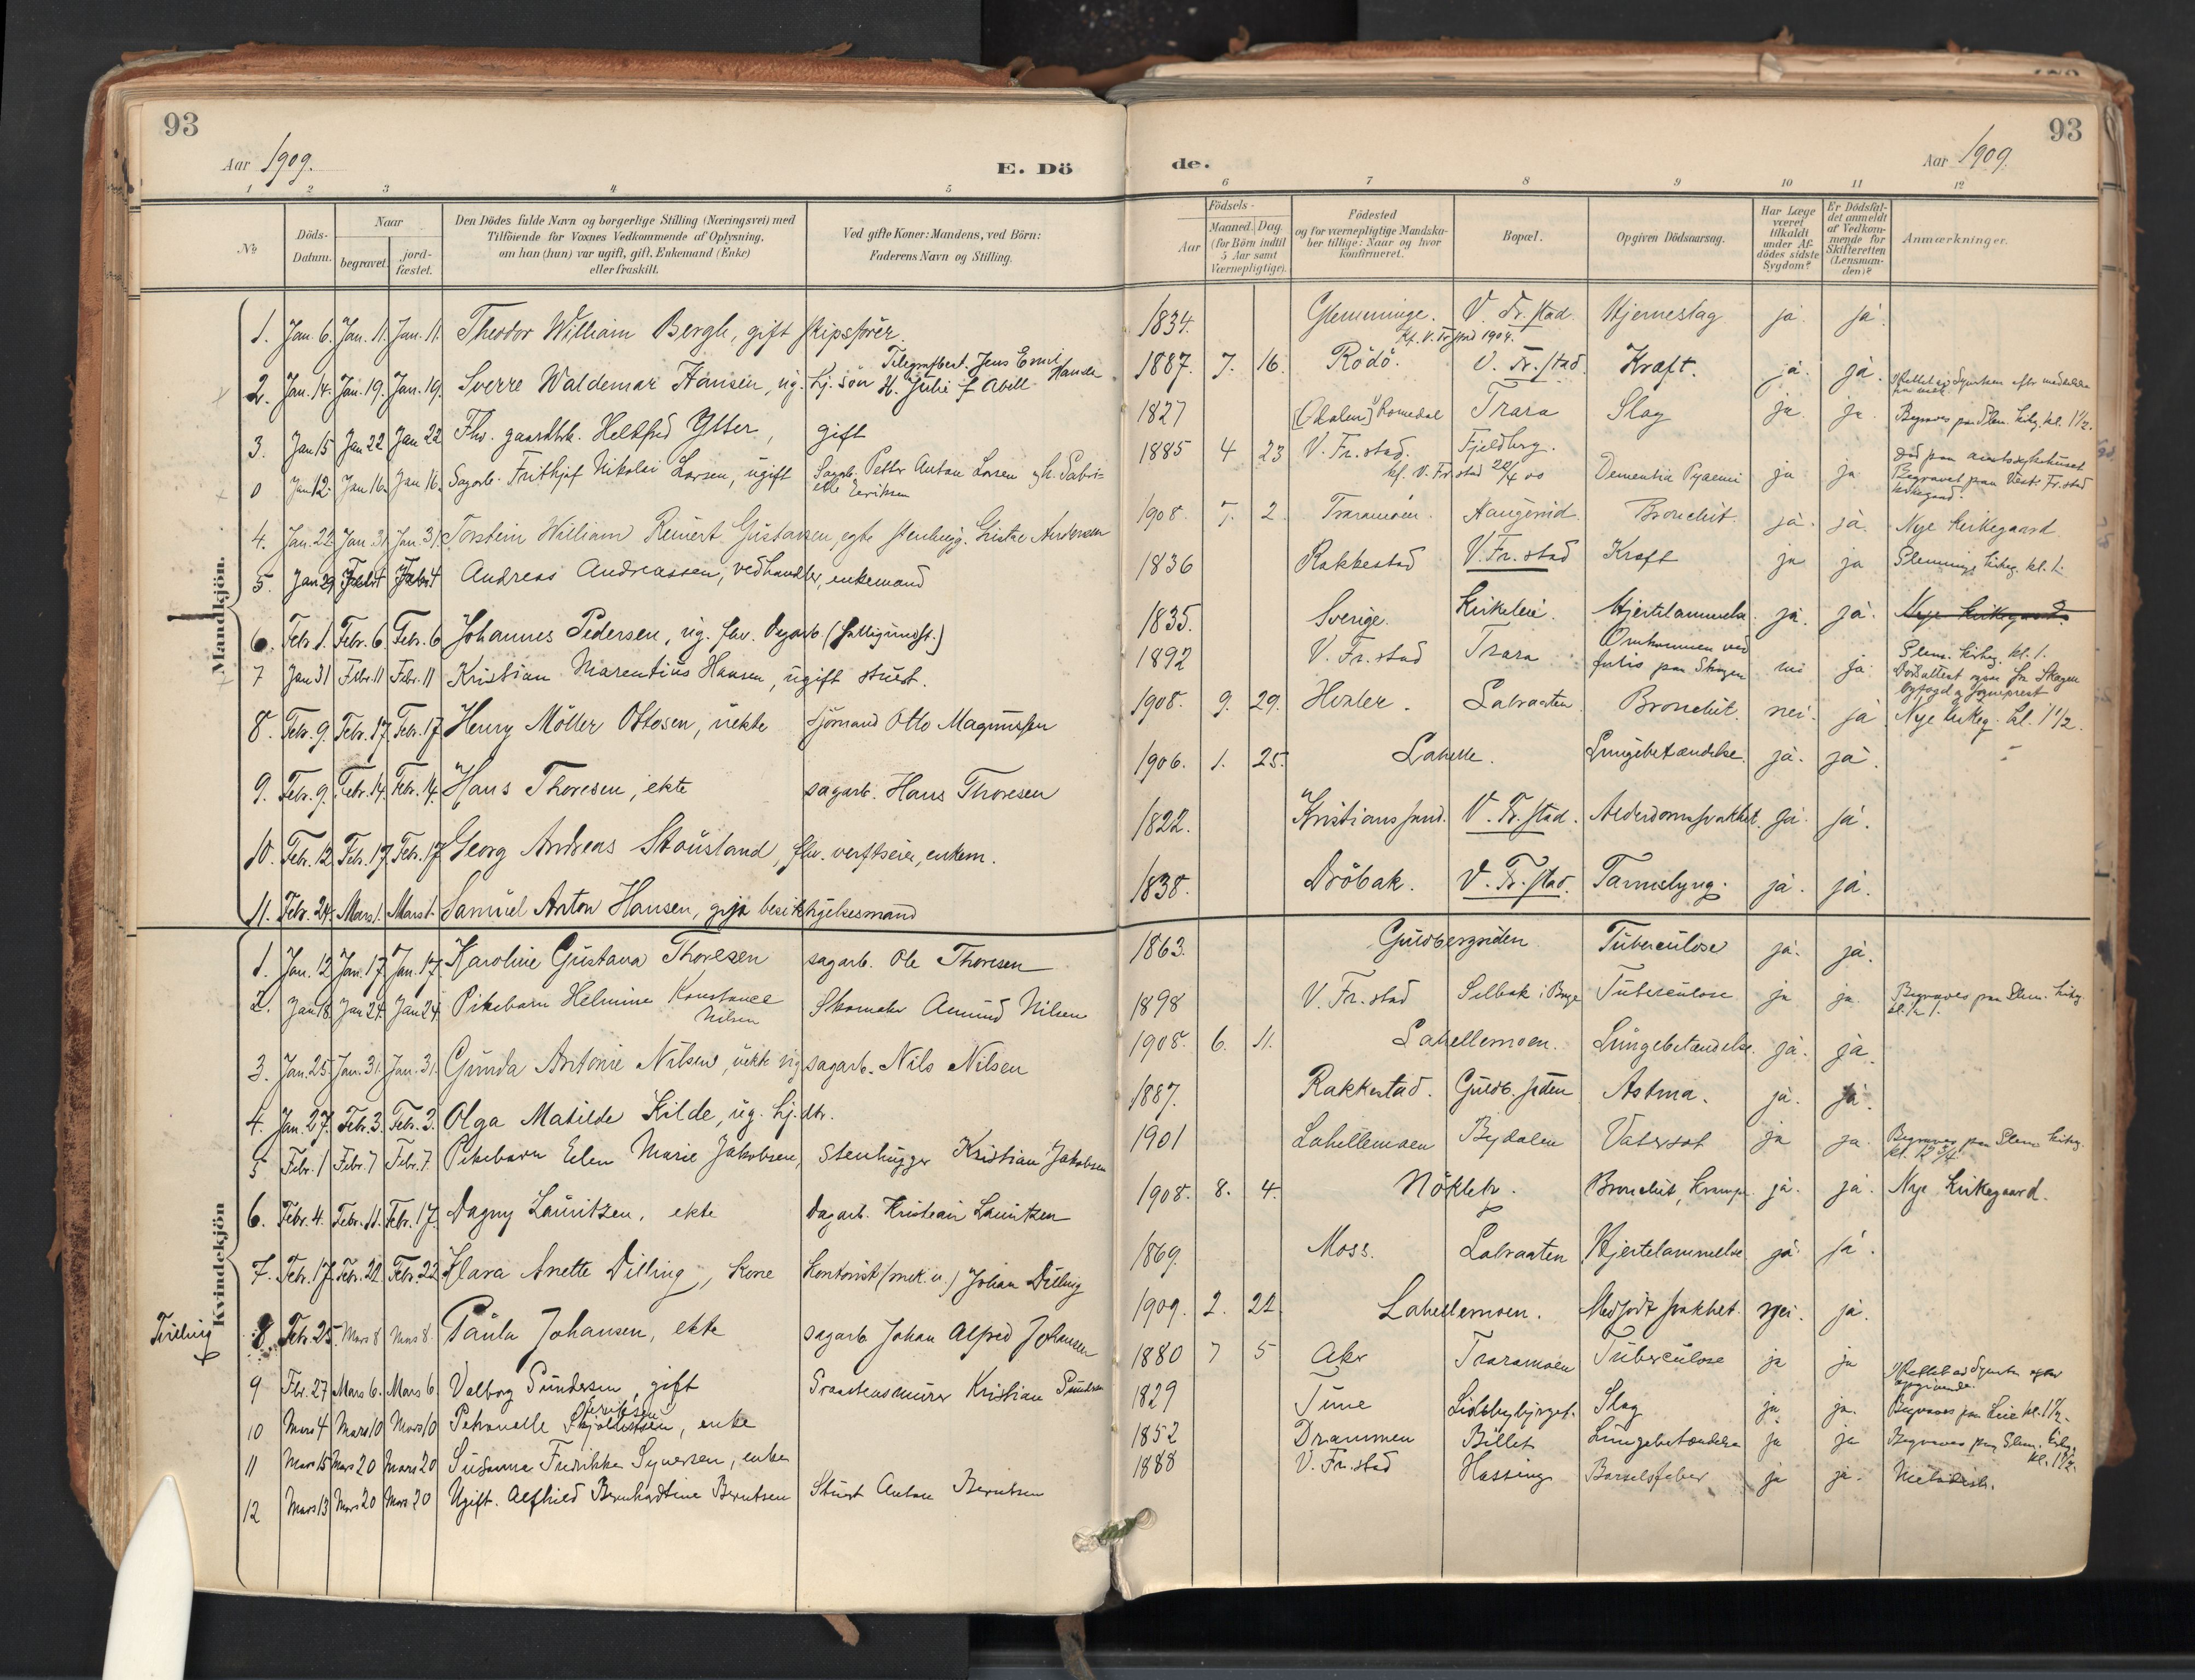 93
93
Aar 1909.
E. Dö
de.
Aar 1909.
1 2 3 4 5 6 7 8 9 10 11 12
№
Döds-Datum.
Naar
begravet.
jord-fæstet.
Den Dödes fulde Navn og borgerlige Stilling (Næringsvei) med
Tilföiende for Voxnes Vedkommende af Oplysning,
om han (hun) var ugift, gift, Enkemand (Enke)
eller fraskilt.
Ved gifte Koner: Mandens, ved Börn:
Faderens Navn og Stilling.
Födsels-
Aar
Maaned. Dag.
(for Börn indtil
5 Aar samt
Værnepligtige).
Födested
og for værnepligtige Mandska-
ber tillige: Naar og hvor
konfirmeret.
Bopæl.
Opgiven Dödsaarsag.
Har Læge
været
tilkaldt
under Af-
dödes sidste
Sygdom?
Er Dödsfal-
det anmeldt
af Vedkom-
mende for
Skifteretten
(Lensman-
den)?
Anmærkninger.
Mandkjön.
1. Jan. 6. Jan. 11. Jan. 11. Theodor William Bergh, gift skipsförer. 1834. Glemminge. V. Fr.stad. Hjerneslag ja. ja.
Kf. V. Fr.stad 1904.
Telegrafbest. Jens Emil Hansen
2. Jan. 14. Jan. 19. Jan. 19. Sverre Waldemar Hansen, ug. hj. sön H. Julie f. Abell 1887. 7. 16. Rödö. V. Fr.stad. Kræft. ja. ja.
3. Jan 15 Jan 22 Jan 22 Fhv. gaardbr. Helkfrid Ytter, gift 1827 Romedal Trara Slag ja ja Begraves paa Glem. kirkg. kl. 1½.
0 Jan 12. Jan 16. Jan 16. Sagarb. Frithjof Nikolai Larsen, ugift Sagarb. Petter Anton Larsen og h. Gabri-
elle Eeriksen 1885 4 23 V. Fr.stad. Fjeldberg.
kf. V. Fr.stad 20/4 00 Dementia ja ja Död paa amtssykehuset
Begravet paa Vest. Fr.stad
kirkegaard.
4. Jan. 22. Jan. 31. Jan. 31. Torstein William Reinert Gustavsen, egte stenhugg. Andersen 1908. 7. 2. Traramoen. Haugerud. Bronchit. ja. ja. Nye kirkegaard
5. Jan 29 Febr 4 Febr 4 Andreas Andreassen, vedhandler, enkemand 1836 Rakkestad V. Fr.stad Kræft ja ja Glemminge kirkeg. kl. 1.
6. Febr. 1. Febr. 6. Febr. 6 Johannes Pedersen, ug. fhv. dagarb. (fattigundst.) 1835. Sverige. Kirkeleie. Hjertelammelse. ja. ja. Nye kirkegaard.
7 Jan 31 Febr. 11 Febr. 11 Kristian Marentius Hansen, ugift stuert. 1892 V. Fr.stad Trara Omkommen ved
forlis paa Skagen nei ja Glem. kirkeg. kl. 1.
Dödsattest ogsaa fra Skagen
byfogd og sogneprest
8. Febr. 9. Febr. 17. Febr. 17. Henry Möller Ottosen, uekte sjömand Otto Magnussen 1908. 9. 29. Hvaler. Labraaten Bronchit. nei. ja Nye kirkeg. kl. 1½.
9. Febr. 9. Febr. 14. Febr. 14. Hans Thoresen, ekte sagarb. Hans Thoresen 1906. 1. 25. Lahelle. Lungebetændelse. ja. ja.
10. Febr. 12. Febr. 17. Febr. 17. Georg Andreas Stousland, fhv. verftseier, enkem. 1822. Kristianssund. V. Fr.stad. Alderdomssvakhet. ja. ja.
11. Febr. 24. Mars 1. Mars 1. Samuel Anton Hansen, besiktigelsesmand 1838. Dröbak. V. Fr.stad. Tarmslyng. ja. ja.
Kvindekjön
1. Jan. 12. Jan. 17. Jan. 17. Karoline Gustava Thoresen sagarb. Ole Thoresen 1863. Guldbergsiden Tuberculose ja. ja.
2. Jan 18. Jan 24. Jan 24. Pikebarn Helmine Konstance
Nilsen Skomaker Amund Nilsen 1898 V. Fr.stad Selbak i Borge Tuberculose ja ja Begraves paa Glem. kirkg.
3. Jan. 25. Jan. 31. Jan. 31. Gunda Antonie Nilsen, uekte sagarb. Nils Nilsen 1908. 6. 11. Lahellemoen. Lungebetændelse. ja. ja.
4. Jan. 27. Febr. 3. Febr. 3. Olga Matilde Kilde, ug. hj. dtr. 1887. Rakkestad. Guldb. siden Astma. ja. ja.
5 Febr. 1 Febr. 7 Febr. 7. Pikebarn Ellen Marie Jakobsen, Stenhugger Kristian Jakobsen 1901 Lahellemoen Bydalen Vatersot ja ja. Begraves paa Glem. kirkg.
kl. 12 3/4
6. Febr. 4. Febr. 11. Febr. 17. Dagny Lauritzen, ekte Dagarb. Kristian Lauritzen 1908. 8. 4. Nökleby. Bronchit, krampe. ja. ja. Nye kirkegaard.
7. Febr. 17. Febr. 22. Febr. 22. Klara Anette Dilling, kone kontorist (mek. v.) Johan Dilling 1869. Moss. Labraaten Hjertelammelse ja. ja.
Tvilling 8. Febr. 25. Mars 8 Mars 8. Paula Johansen, ekte sagarb. Johan Alfred Johansen 1909. 2. 22. Lahellemoen. Medfödt svakhet. nei. ja.
9 Fbr. 27 Mars 6. Mars 6 Valborg Sundersen, gift Kristian 1880 7 5 Aker Traramoen Tuberculose ja ja
10 Mars 4 Mars 10 Mars 10 Petronelle Eriksen, enke 1829 Tune Slag ja ja. Begraves paa Leie kl. 1½.
11 Mars 15 Mars 20 Mars 20 Susanna Fredrikke Syversen, enke 1852 Drammen Billet Lungebetændelse ja ja Begraves paa Glem. kirkg.
kl. 1½.
12 Mars 13 Mars 20 Mars 20 Ugift. Alfhild Bernhardine Berntsen Stuert Anton Berntsen 1888 V. Fr.stad Hassing Barselsfeber ja ja. Metodist.